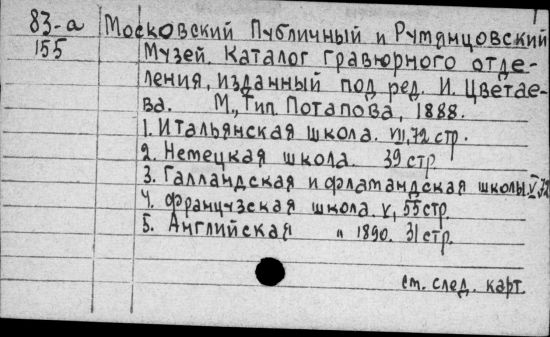 83-а Московский Публичный и Румянцовский
155 Музей. Каталог Гравюрного отде-
ления, изданный под ред. И. Цветае-
ва. М., Тип. Потапова, 1888.
1. Итальянская школа. VII, 72 стр.
2. Немецкая школа. 39 стр.
3. Галландская и фламандская школы. V,
4. Французская школа. V, 55 стр.
5. Английская " 1890. 31 стр.
см. след. карт.